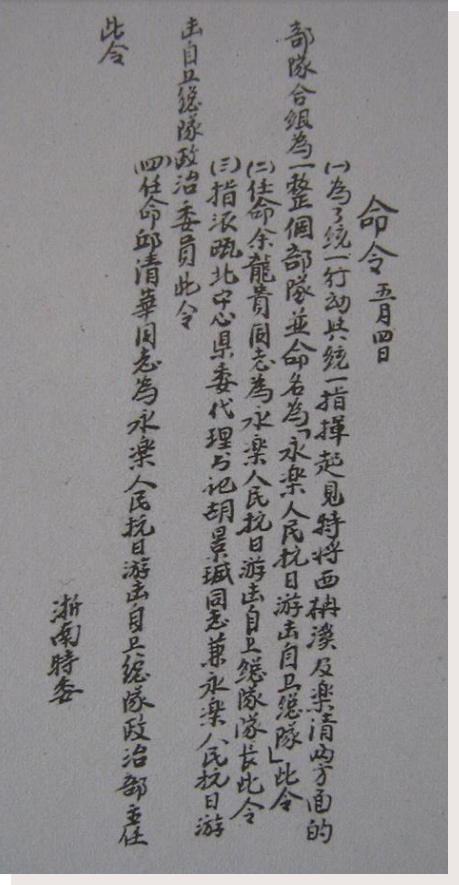 命令 五月四日
(一)为了统一行动与统一指揮起見特將西楠溪及楽清両方面的
部隊合組為一整個部隊並命名為「永楽人民抗日游击自卫總隊」此令
(二)任命余龍貴同志為永楽人民抗日游击自卫總隊隊長此令
(三)指派甌北中心県委代理书记胡景瑊同志兼永楽人民抗日游
击自卫總隊政治委員此令
(四)任命邱清華同志為永楽人民抗日游击自卫總隊政治部主任
此令
浙南特委